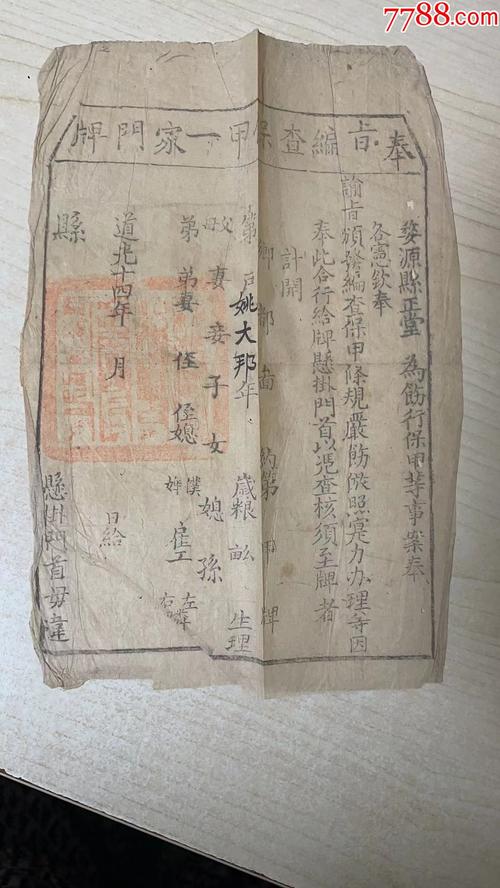 7788.com
奉旨編查保甲一家門牌
婺源縣正堂 為飭行保甲等事案奉
各憲欽奉
諭旨頒發編查保甲條規嚴飭依照寔力办理等因
奉此合行給牌懸掛門首以凴查核須至牌者
計開
鄉 都 啚 約第 甲 牌
第 戶姚大邦年 歲粮 畆 生理
父 母 妻 妾 子 女 媳 孫
弟 弟妻 侄 侄媳 僕 婢 雇工 左鄰 右鄰
道光十四年 月 日給
縣 懸掛門首毋違